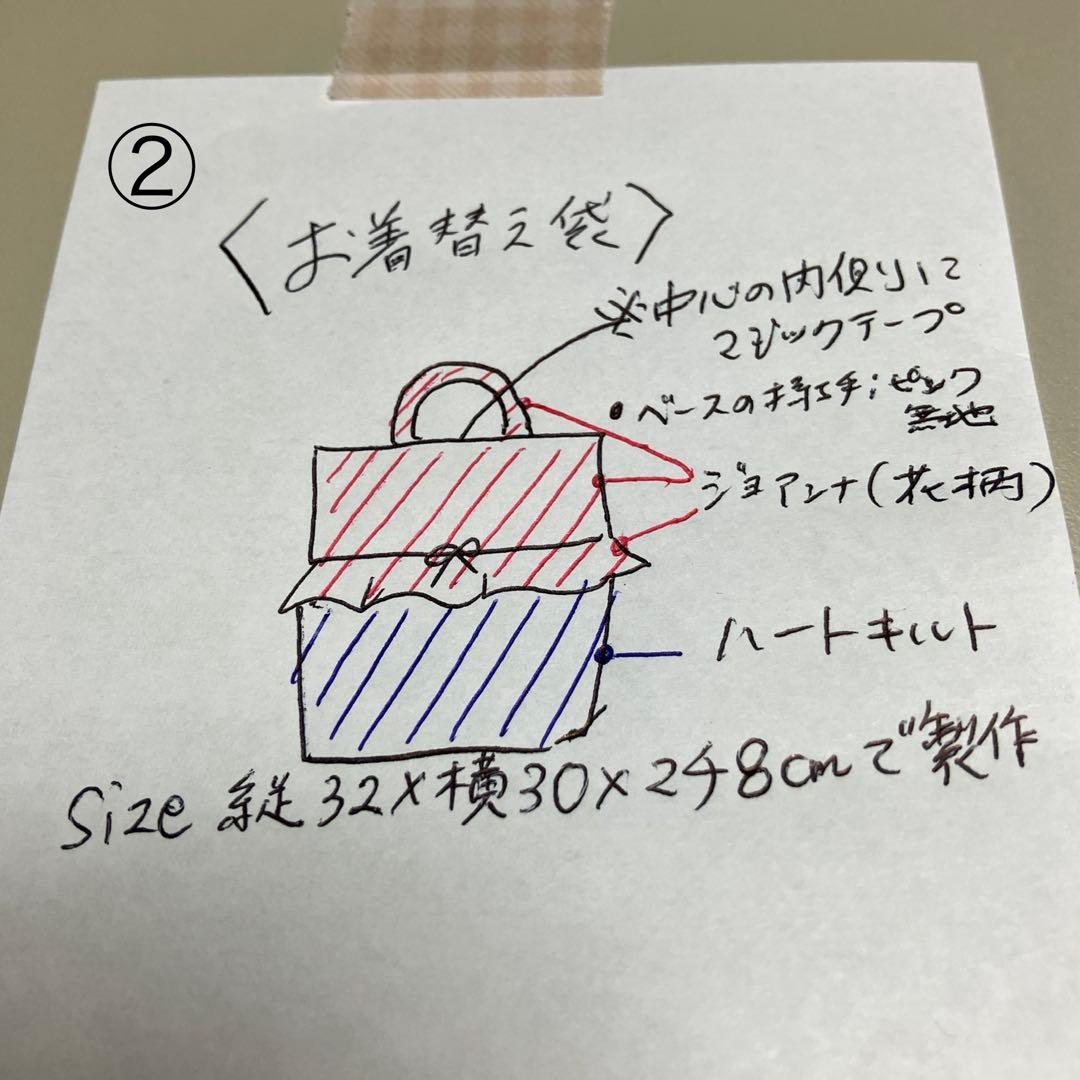 ②
〈お着替え袋〉
※中心の内側に
マジックテープ
•ベースの持ち手;ピンク
無地
ジョアンナ(花柄)
ハートキルト
Size 縦32×横30×マチ8cmで製作